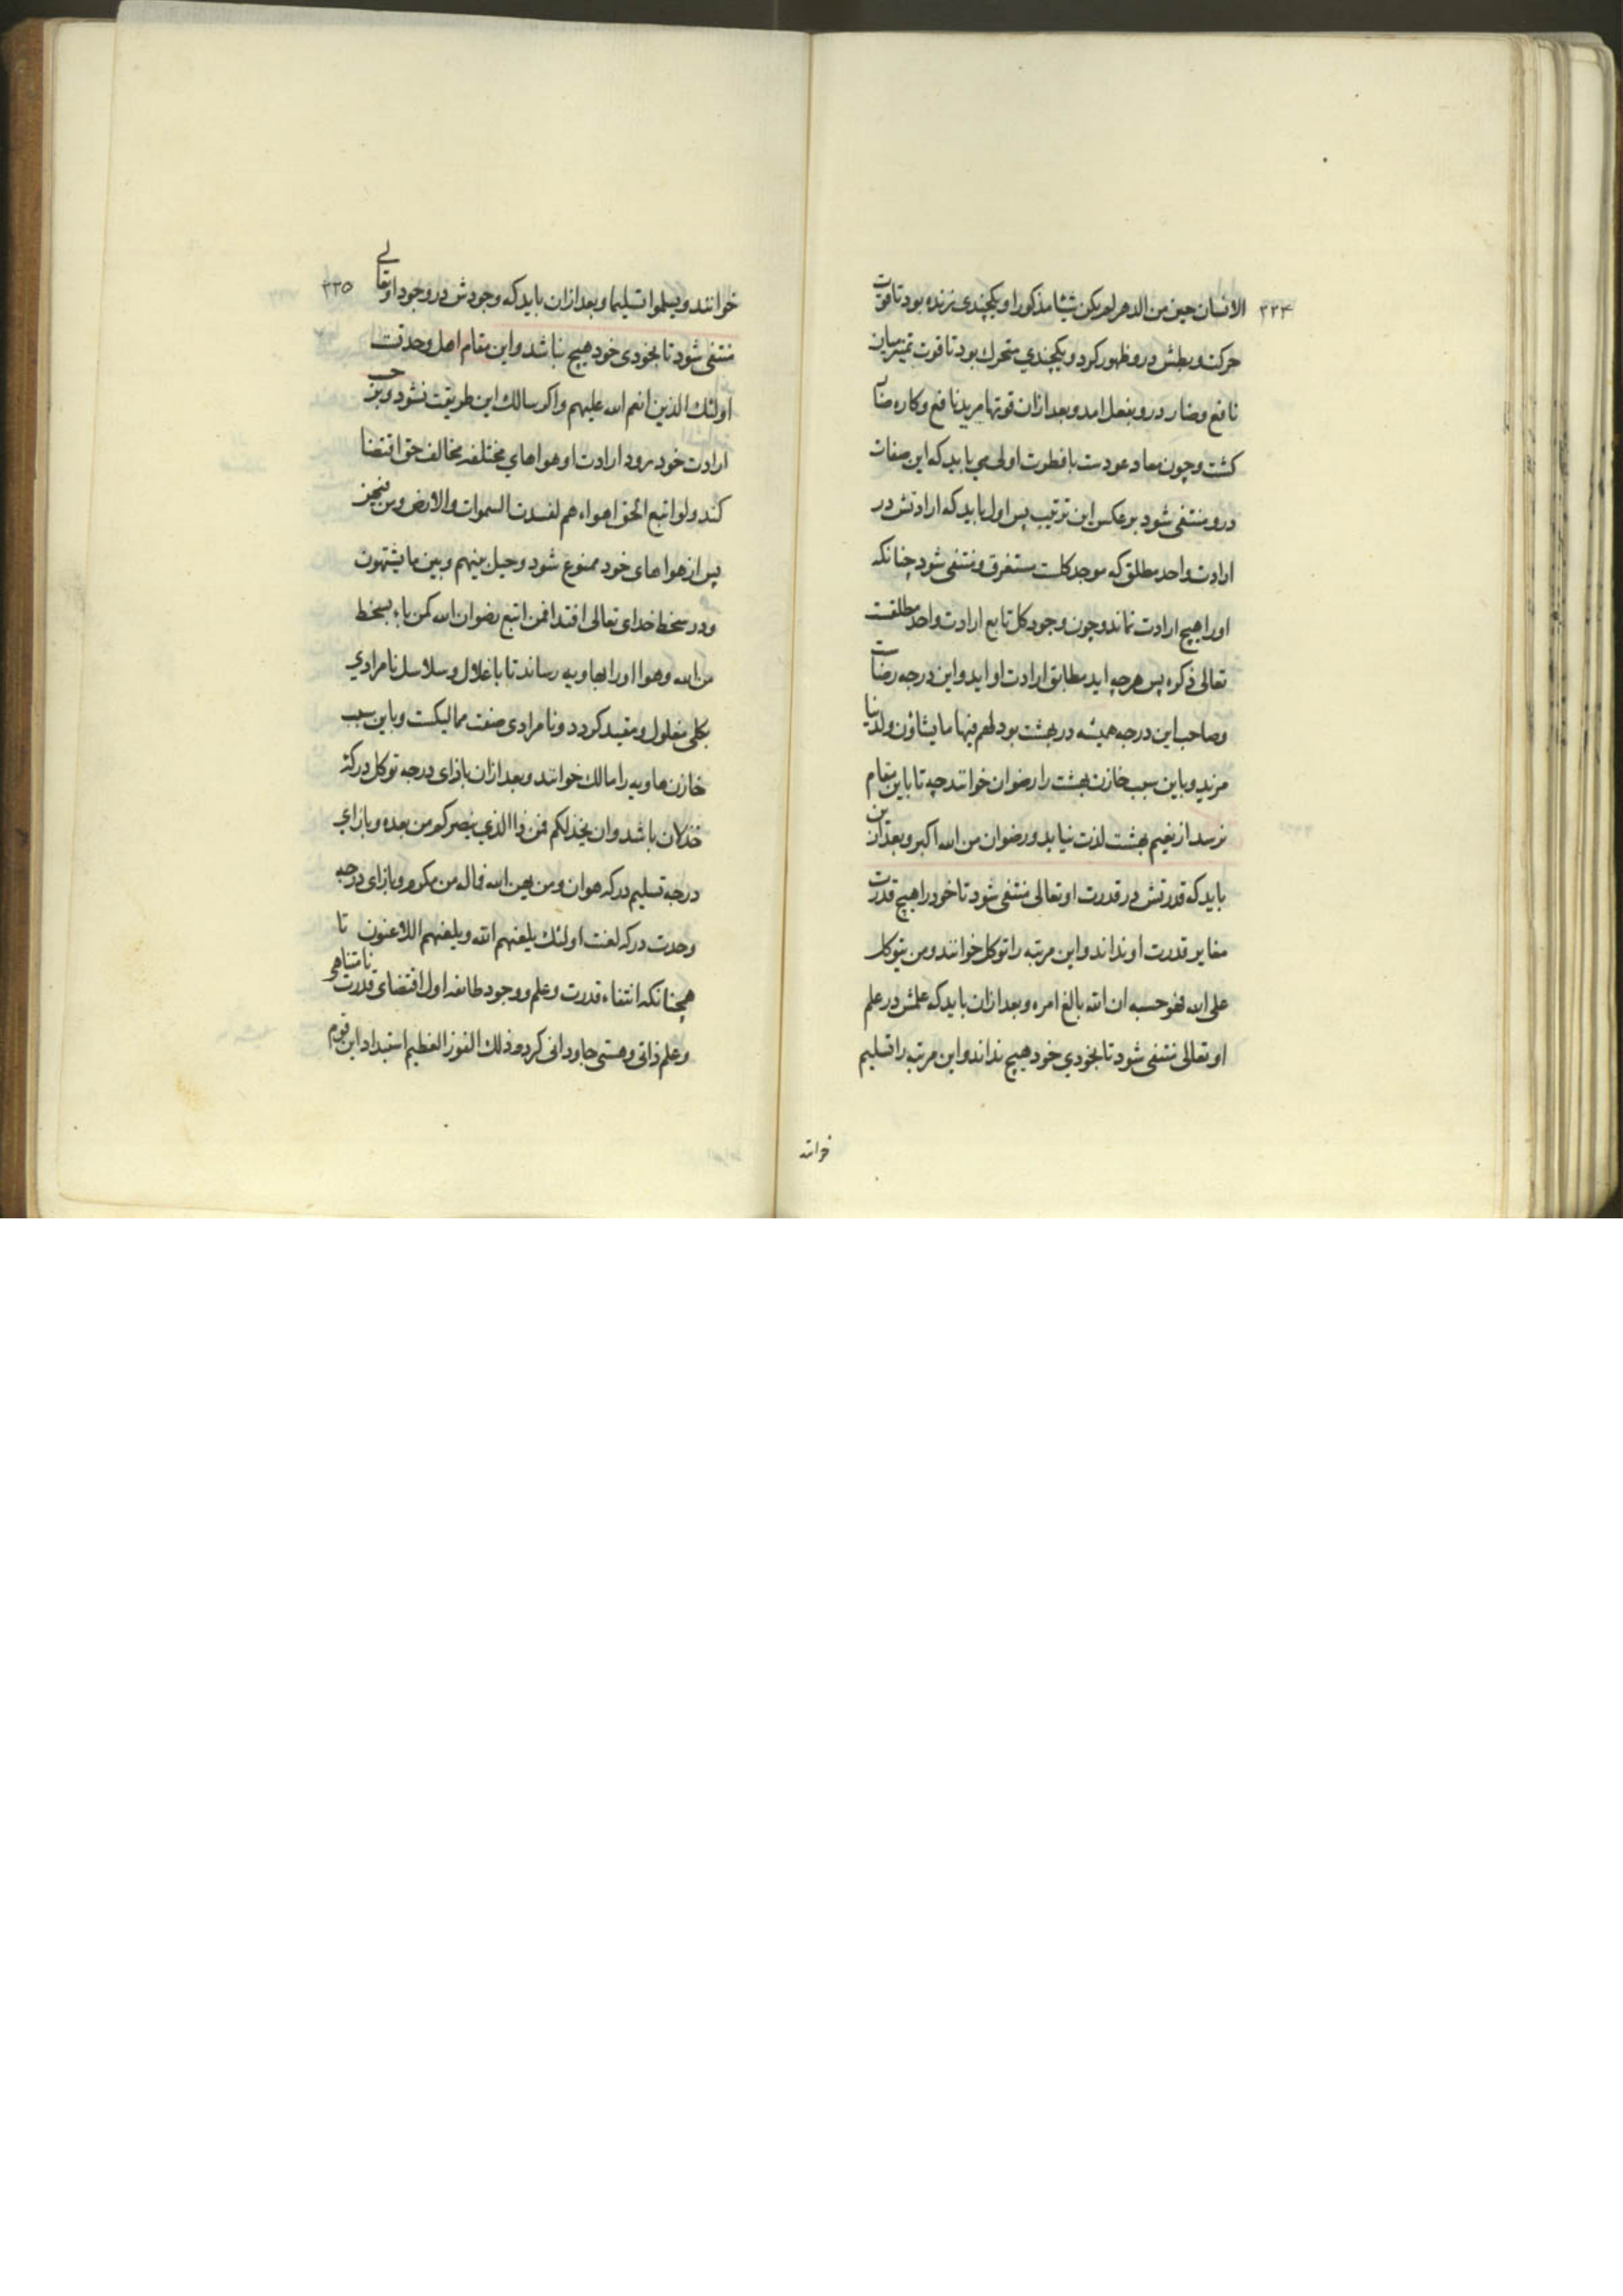 ۲۳۴
الانسان حین من الدهر لم یکن شیئا مذکورا و یکچندی زنده بود تا قوت
حرکت و بطش درو ظهور کرد و یکچندی متحرك بود تا قوت تمییز میان
نافع و ضار درو بفعل امد و بعد ازان قوتها مرید نافع و کاره ضار
کشت و چون معاد عودست با فطرت اولی می باید که این صفات
درو منتفی شود بر عکس این ترتیب پس اول باید که ارادتش در
ارادت واحد مطلق که موجد کلست مستغرق و منتفی شود چنانکه
او را هیچ ارادت نماند و چون وجود کل تابع ارادت واحد مطلقست
تعالی ذکره پس هرچه اید مطابق ارادت او اید و این درجه رضاست
و صاحب این درجه همیشه در بهشت بود لهم فیها ما یشاؤن ولدینا
مزید و باین سبب خازن بهشت را رضوان خوانند چه تا باین مقام
نرسد از نعیم بهشت لذت نیابد و رضوان من الله اکبر و بعد ازین
باید که قدرتش در قدرت او تعالی منتفی شود تا خود را هیچ قدرت
مغایر قدرت او نداند و این مرتبه را توکل خوانند ومن یتوکل
علی الله فهو حسبه ان الله بالغ امره و بعد ازان باید که علمش در علم
او تعالی منتفی شود تا بخودی خود هیچ نداند و این مرتبه را تسلیم
خوانند
۲۳۵
خوانند ویسلموا تسلیما و بعد ازان باید که وجودش در وجود او تعالی
منتفی شود تا بخودی خود هیچ نباشد و این مقام اهل وحدتست
اولئك الذین انعم الله علیهم و اکر سالك این طریقت نشود و بر حسب
ارادت خود رود ارادت او هواهای مختلفه مخالف حق اقتضا
کند ولو اتبع الحق اهواءهم لفسدت السموات والارض ومن فیهن
پس از هواهای خود ممنوع شود وحیل بینهم وبین ما یشتهون
و در سخط خدای تعالی افتد افمن اتبع رضوان الله کمن باء بسخط
من الله و هوا او را بهاویه رساند تا باغلال و سلاسل نامرادی
بکلی مغلول و مقید کردد و نامرادی صفت ممالیکست و باین سبب
خازن هاویه را مالك خوانند و بعد ازان بازای درجه توکل درکه
خذلان باشد وان یخذلکم فمن ذا الذی ینصرکم من بعده و بازای
درجه تسلیم درکه هوان ومن یهن الله فماله من مکرم و بازای درجه
وحدت درکه لعنت اولئك یلعنهم الله ویلعنهم اللاعنون تا
همچنانکه انتفاء قدرت و علم و وجود طائفه اول اقتضای قدرت نامتناهی
و علم ذاتی و هستی جاودانی کرد وذلك الفوز العظیم استبداد این قوم